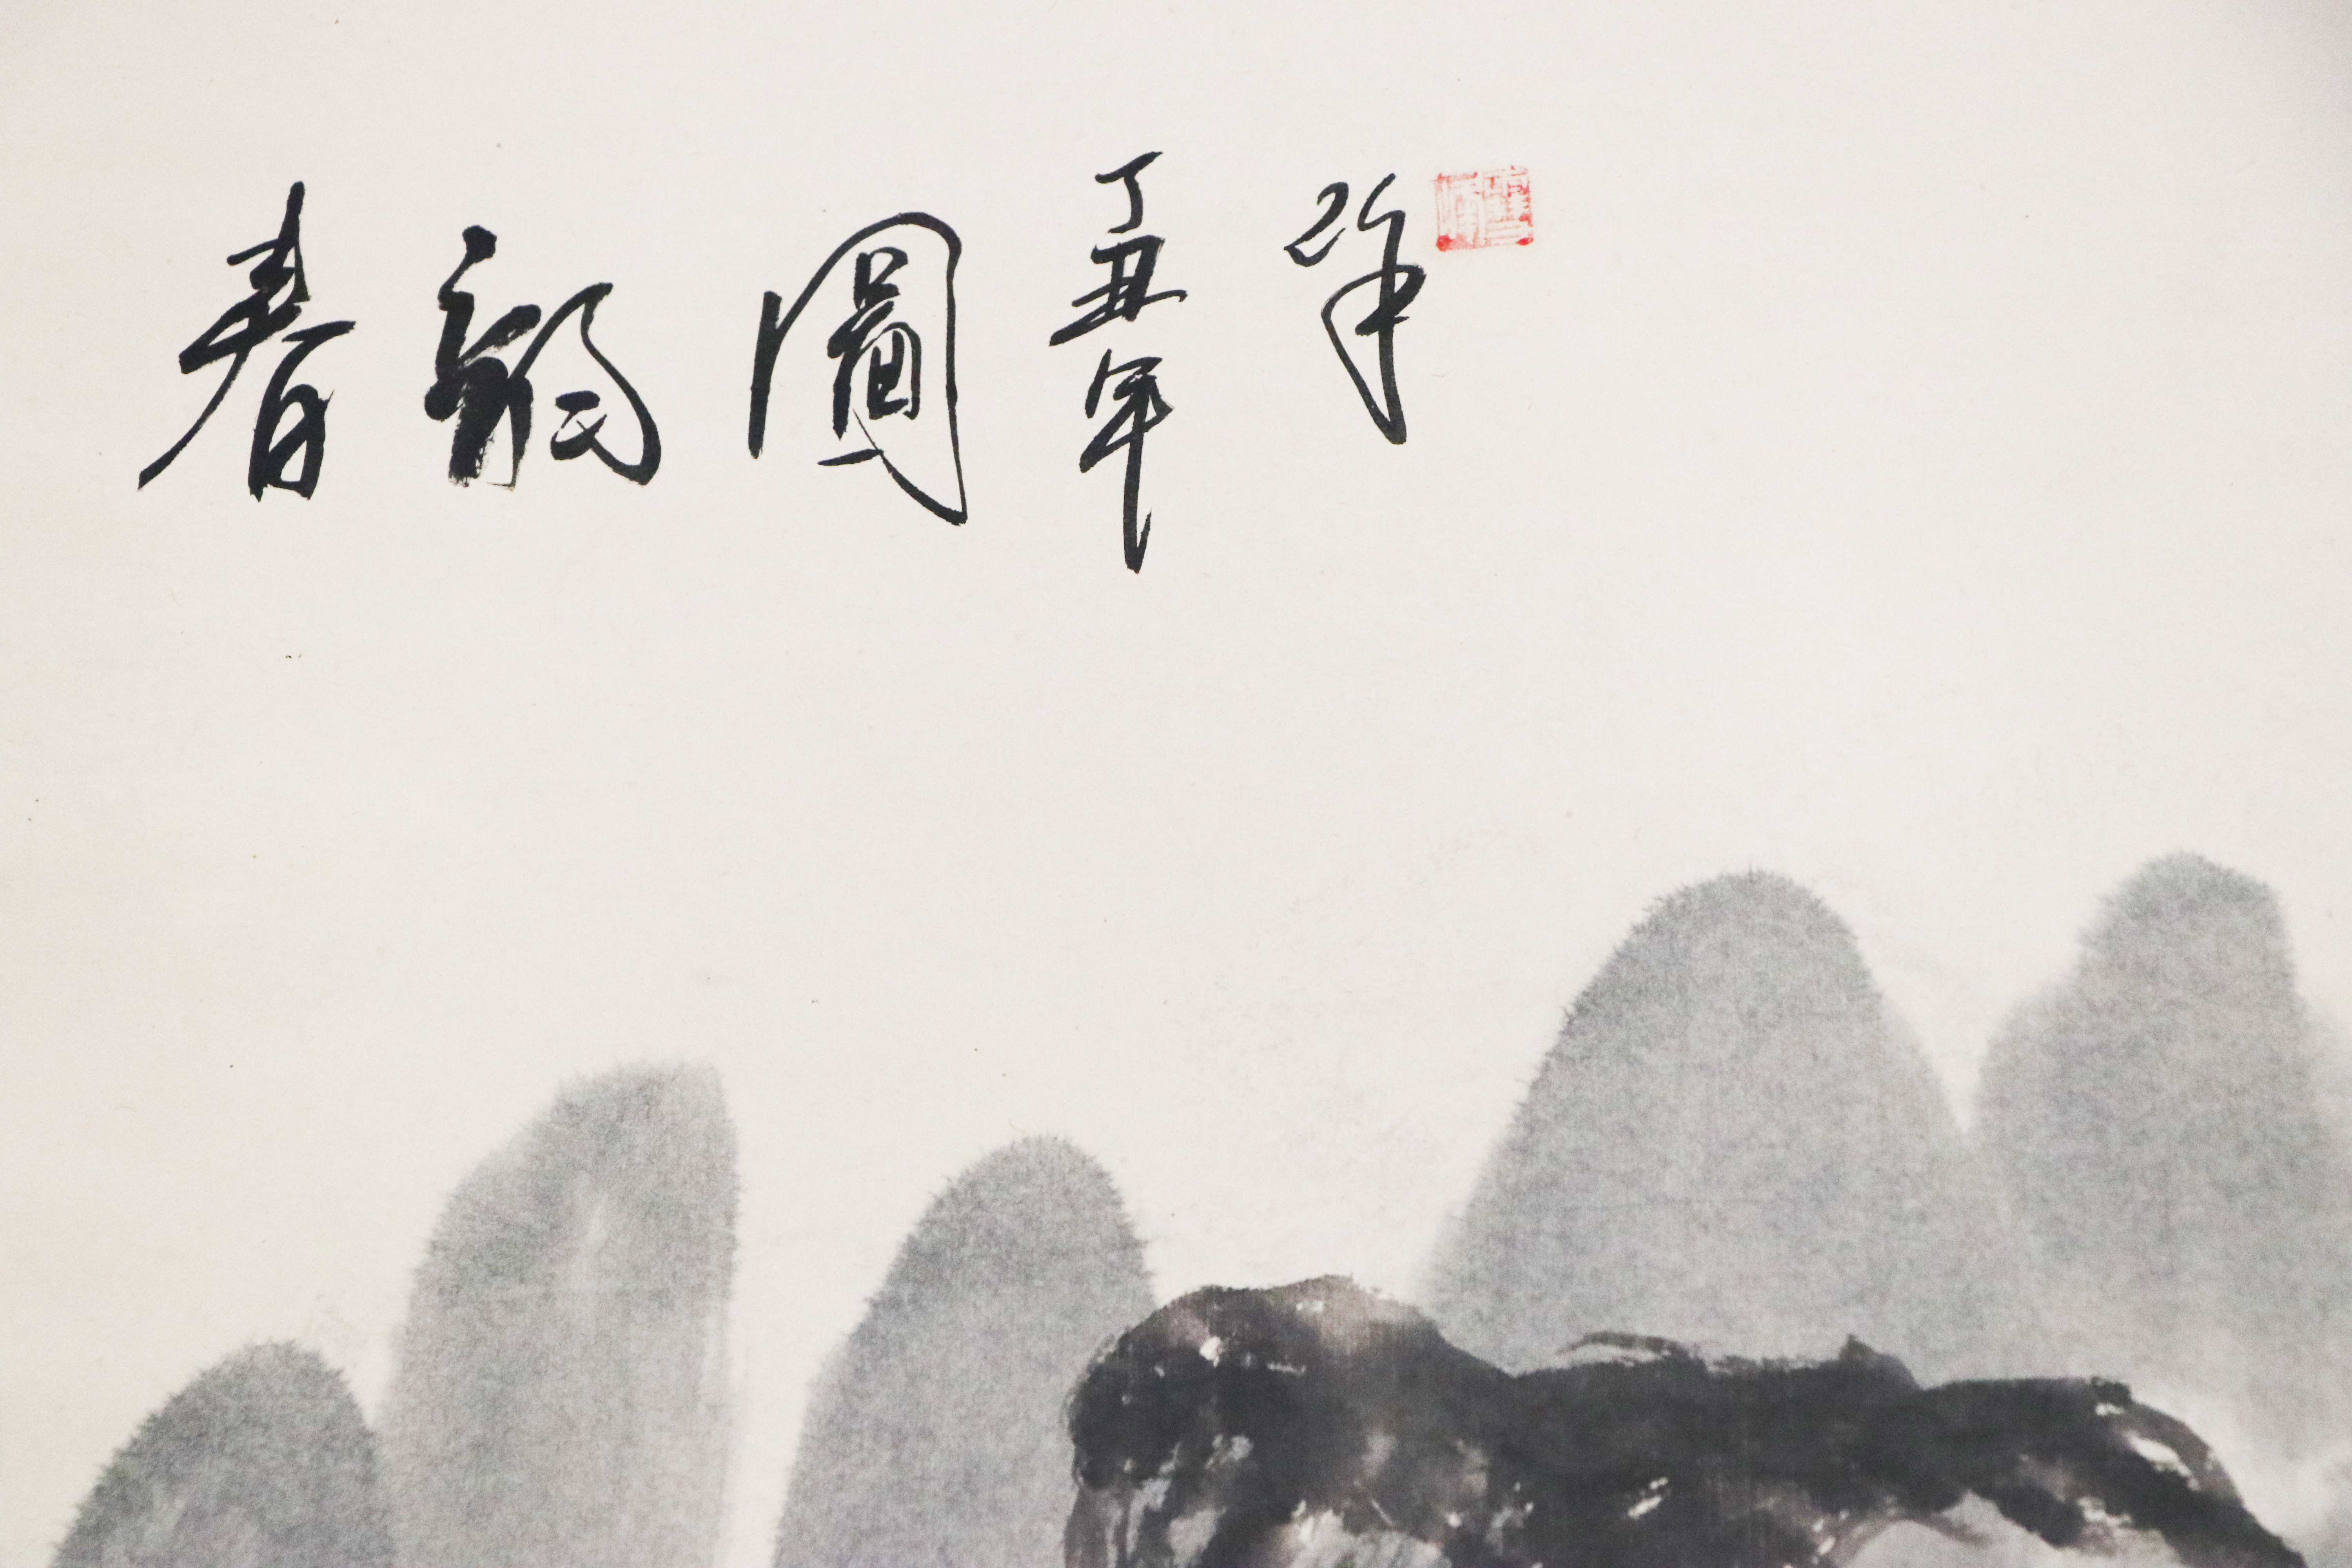 春韻圖
丁丑年